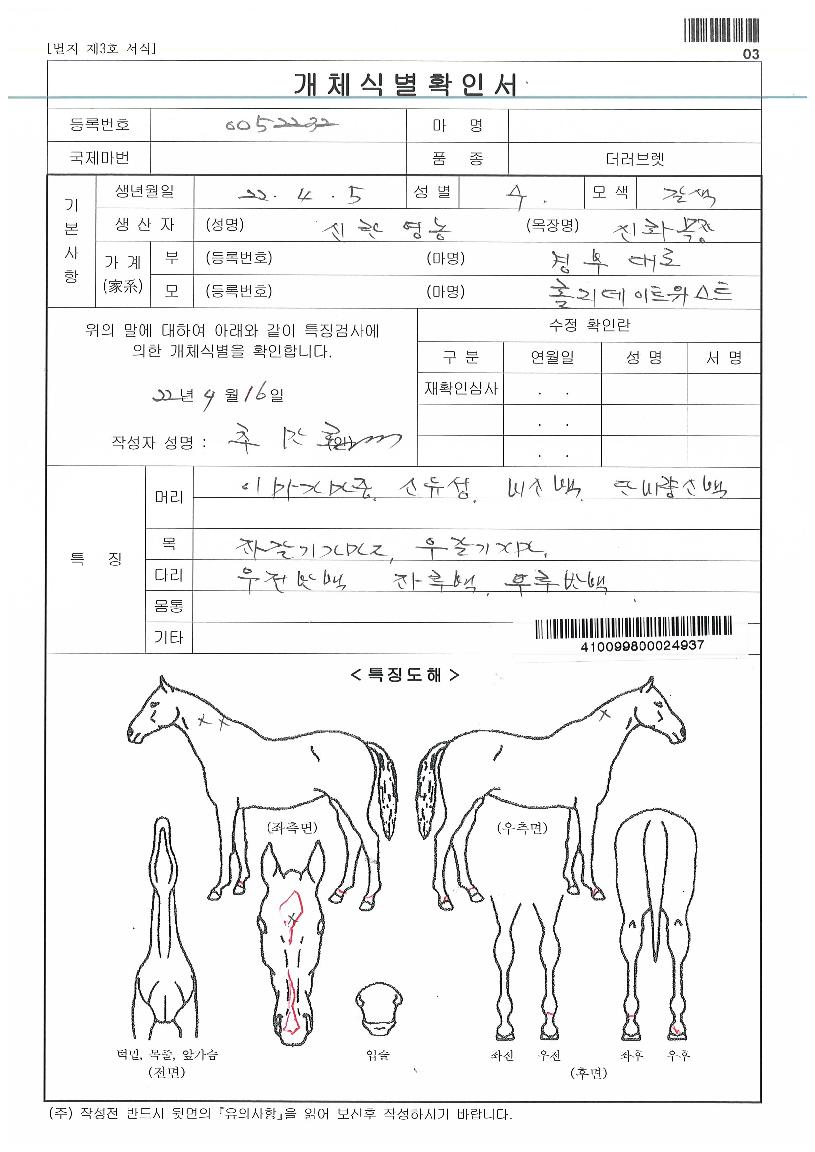 03
[별지 제3호 서식]
개체식별확인서
등록번호 0052232 마 명
국제마번 품 종 더러브렛
기본사항 생년월일 22. 4. 5 성 별 수. 모 색 갈색
생 산 자 (성명) 신관 영농 (목장명) 진화목장
가 계 (家系) 부 (등록번호) (마명) 경부대로
모 (등록번호) (마명) 홀리데이트위스트
위의 말에 대하여 아래와 같이 특징검사에
의한 개체식별을 확인합니다.
22년 9월 16일
작성자 성명 :
수정 확인란
구 분 연월일 성 명 서 명
재확인심사 . .
. .
. .
특 징
머리 비신백,
목
다리 우전반백 좌후백,
몸통
기타
410099800024937
< 특징도해 >
(좌측면) (우측면)
턱밑, 목줄, 앞가슴 입술 좌전 우전 좌후 우후
(전면) (후면)
(주) 작성전 반드시 뒷면의 『유의사항』을 읽어 보신후 작성하시기 바랍니다.